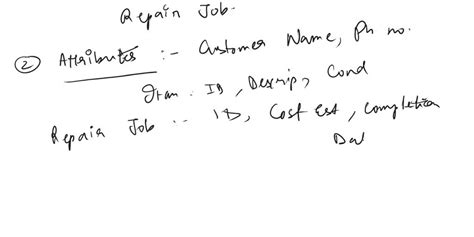 Repair Job.
② Attributes :- Customer Name, Ph no.
Item : ID, Descrip, Cond
Repair Job :- ID, Cost Est, Completion
Dat